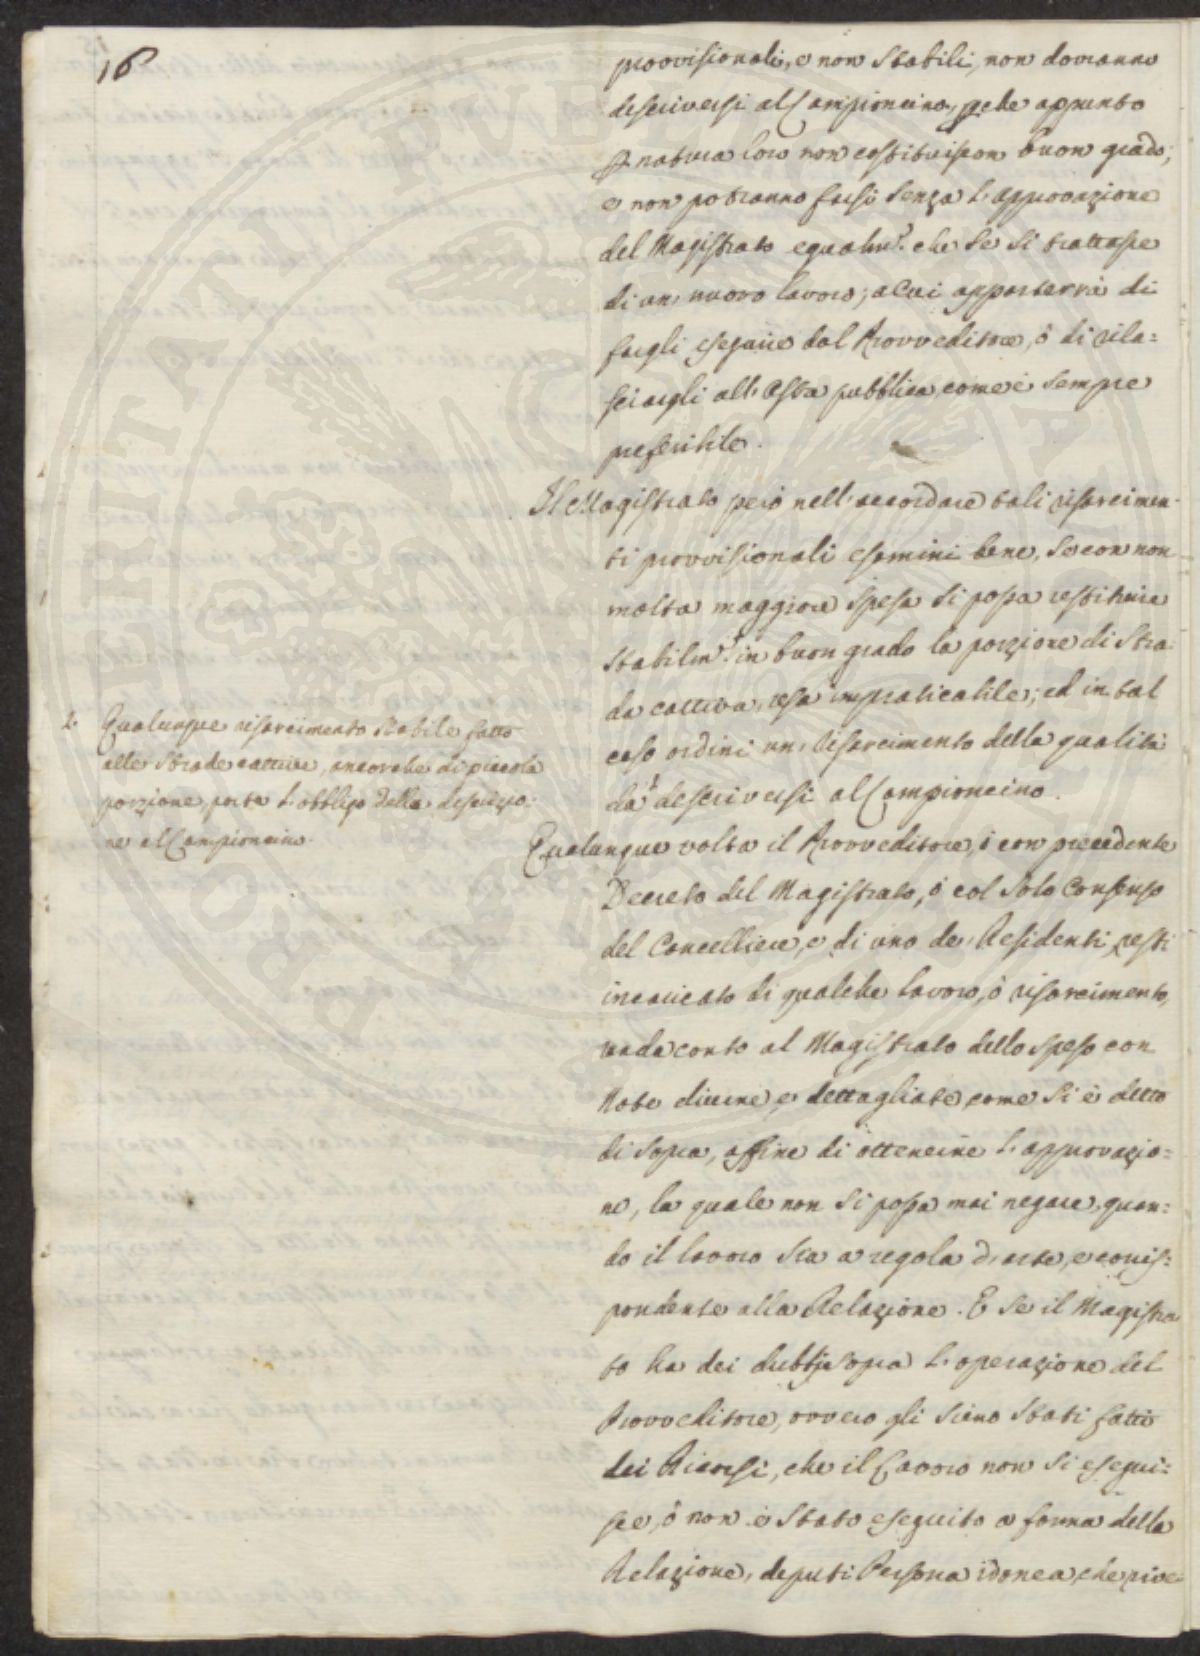 16
provvisionali, e non stabili, non dovranno
descriversi al Campioncino, pche appunto
p natura loro non costituiscon buon grado;
e non potranno farsi senza l'approvazione
del Magistrato egualm.e che se si trattasse
di un nuovo lavoro; a cui apparterrà di
fargli eseguire dal Provveditore, ò di rila=
sciargli all'Asta pubblica, come è sempre
preferibile.
Il Magistrato però nell'accordare tali risarcimen-
ti provvisionali esamini bene, se con non
molta maggiore spesa si possa restituire
stabilm.e in buon grado la porzione di Stra-
da cattiva, resa impraticabile; ed in tal
caso ordini un risarcimento della qualità
da descriversi al Campioncino.
2. Qualunque risarcimento stabile fatto
alle Strade cattive, ancorche di piccola
porzione, porta l'obbligo della descrizio-
ne al Campioncino.
Qualunque volta il Provveditore, ò con precedente
Decreto del Magistrato, ò col solo Consenso
del Cancelliere, e di uno de' Residenti, resti
incaricato di qualche lavoro, ò risarcimento,
renda conto al Magistrato dello speso con
Note chiare, e dettagliate, come si è detto
di sopra, affine di ottenerne l'approvazio=
ne, la quale non si possa mai negare, quan=
do il lavoro sta a regola d'arte, e corris=
pondente alla Relazione. E se il Magistra
to ha dei dubbj sopra l'operazione del
Provveditore, ovvero gli sieno stati fatti
dei Ricorsi, che il Lavoro non si esegui=
sce, ò non è stato eseguito a forma della
Relazione, deputi Persona idonea, che rive
PROPRIETATI PUBLICAE